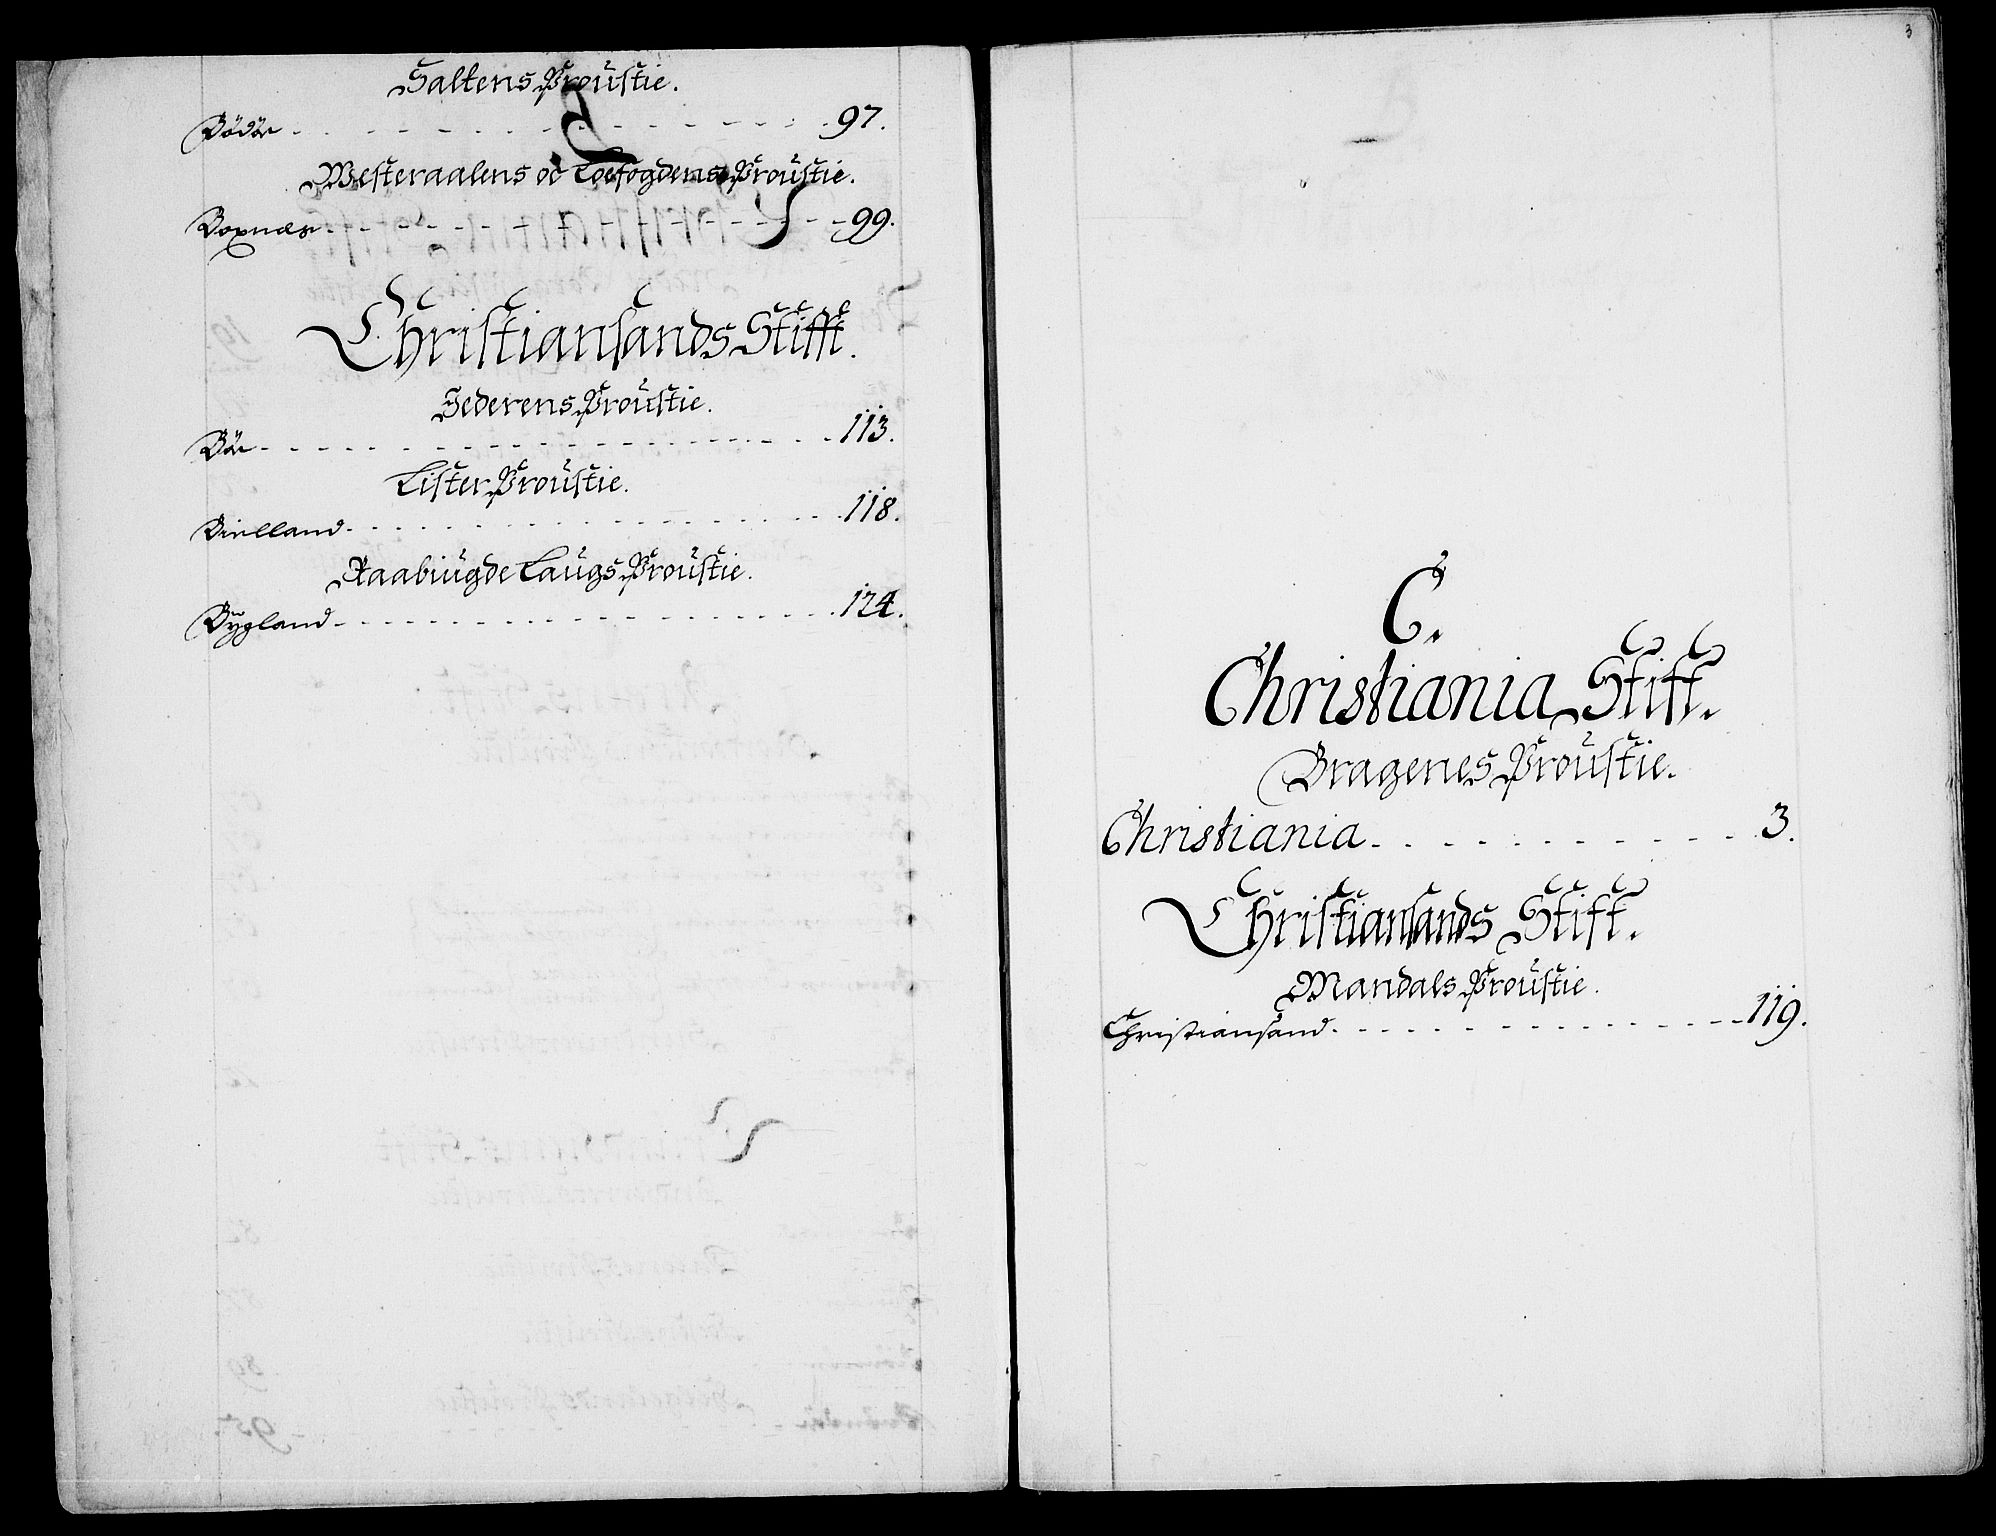 Saltens Proustie.
Bödöe - - - - - - - - - - - 97.
Westeraalens oc Loefogdens Proustie.
Boxnæs - - - - - - - - - - - 99.
Christiansands Stifft.
Jederens Proustie.
Böe - - - - - - - - - - - 113.
Lister Proustie.
Birlland - - - - - - - - - - - 118.
Raabiügde Laugs Proustie.
Bÿgland - - - - - - - - - - - 124.
3
C.
Christiania Stift.
Bragenes Proustie.
Christiania - - - - - - - - - - - 3.
Christiansands Stift.
Mandals Proustie.
Christiansand - - - - - - - - - - - 119.